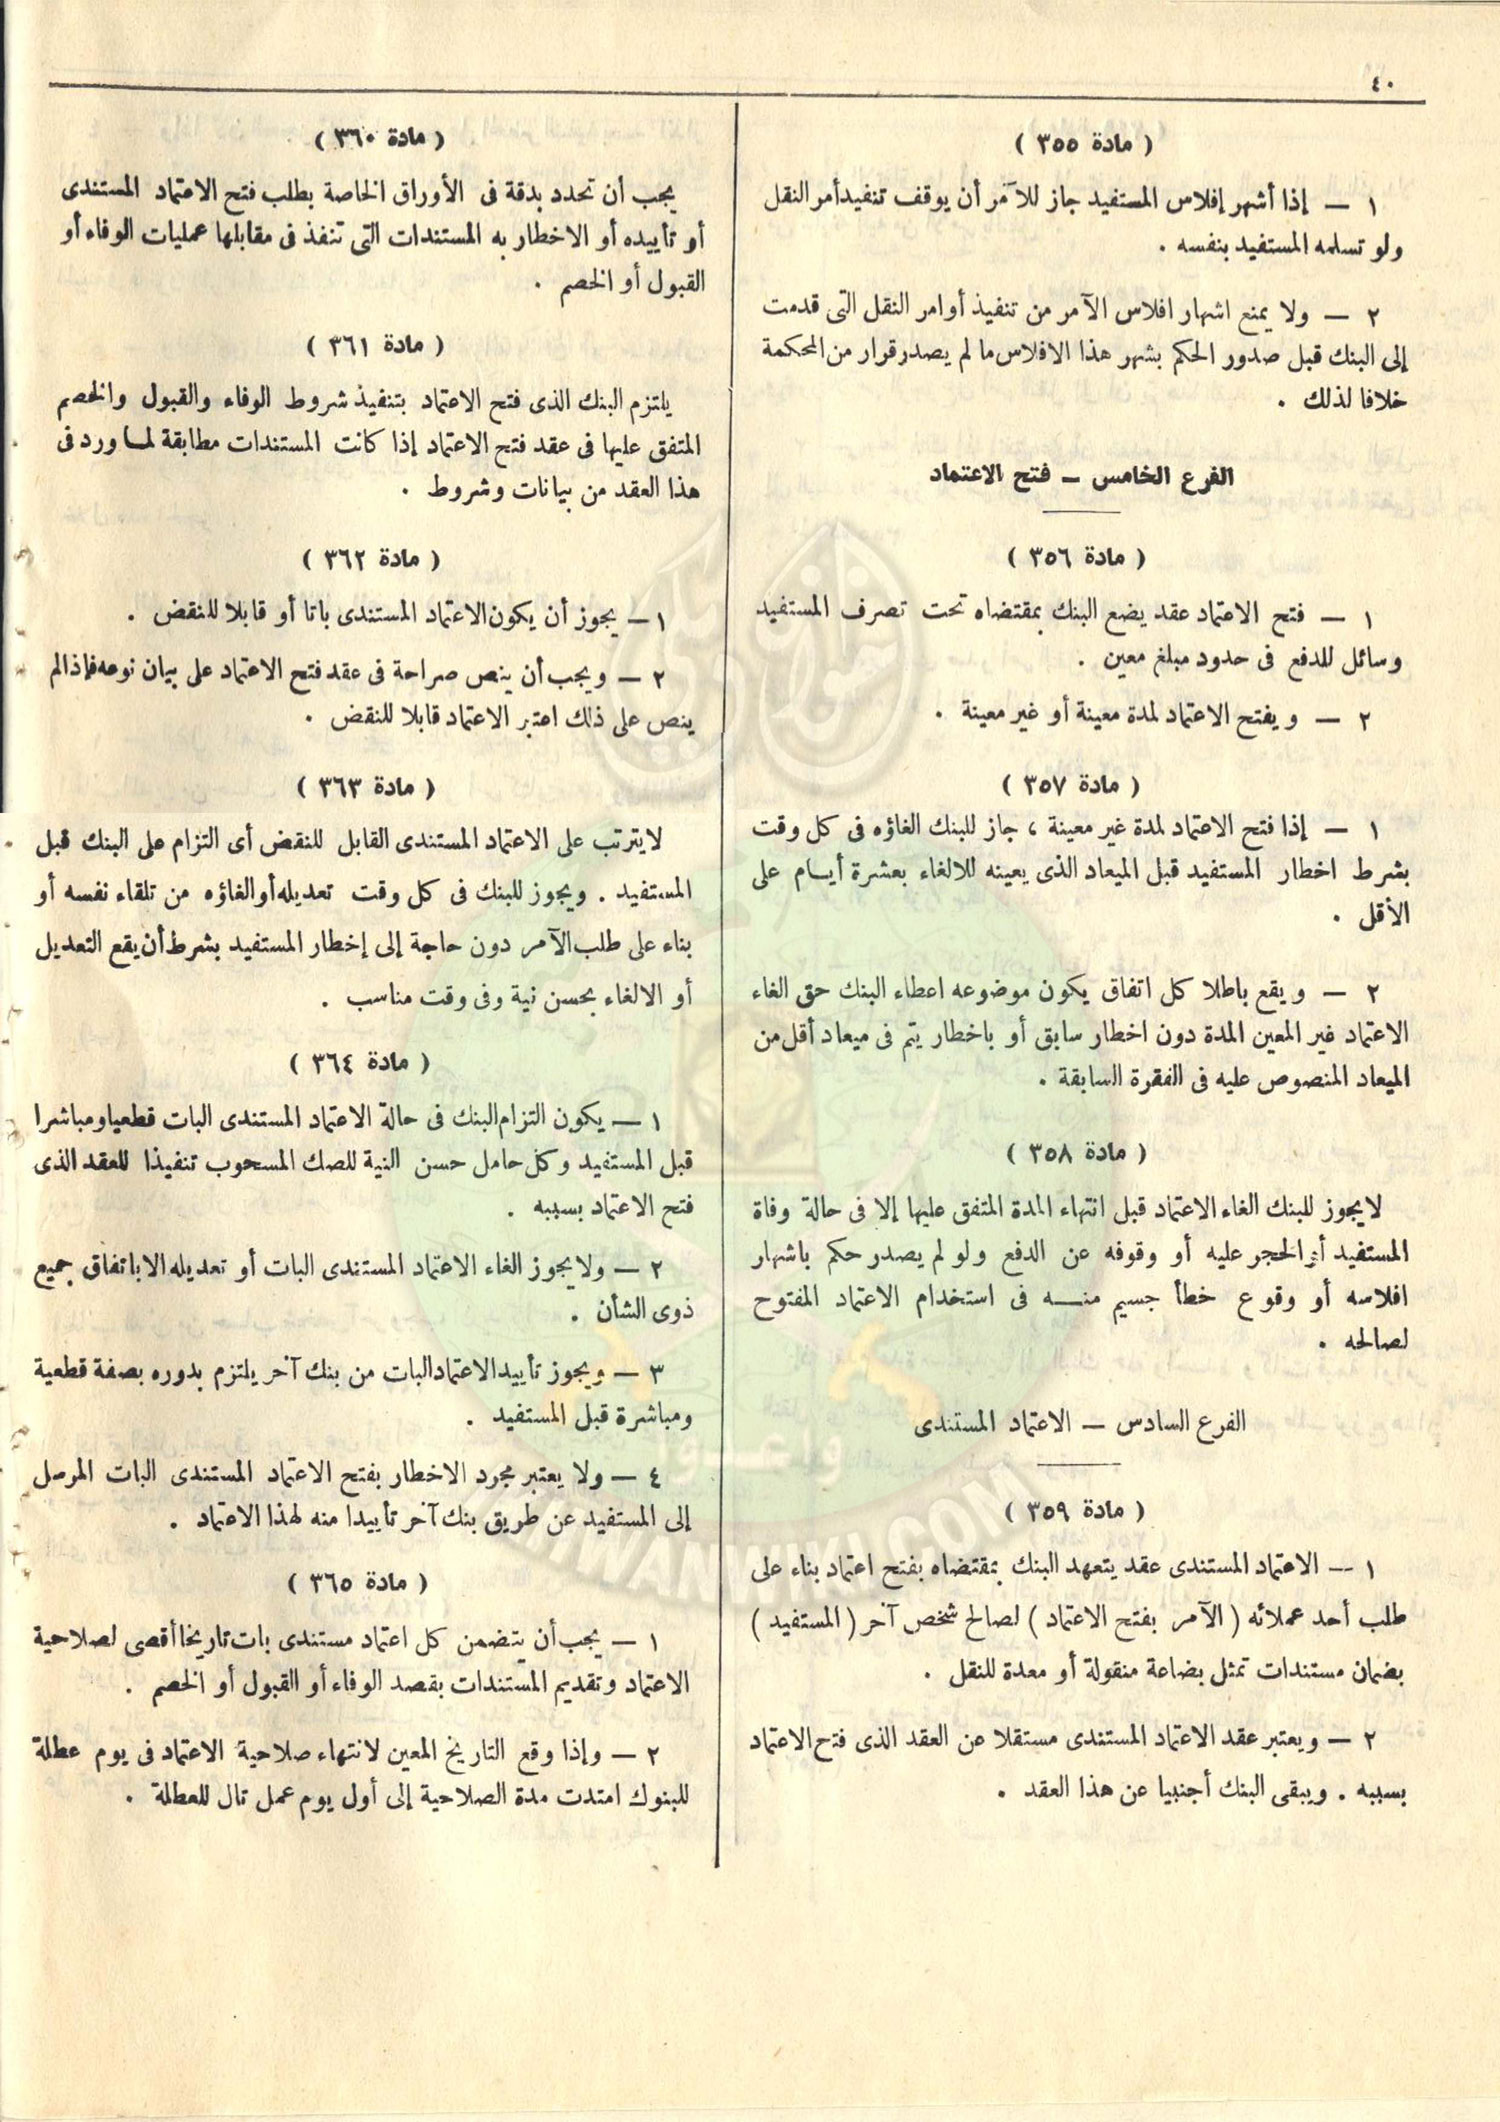 ٤٠
( مادة ٣٥٥ )
١ — إذا أشهر إفلاس المستفيد جاز للآمر أن يوقف تنفيذ أمر النقل
ولو تسلمه المستفيد بنفسه .
٢ — ولا يمنع اشهار افلاس الآمر من تنفيذ أوامر النقل التى قدمت
إلى البنك قبل صدور الحكم بشهر هذا الافلاس ما لم يصدر قرار من المحكمة
خلافا لذلك .
الفرع الخامس — فتح الاعتماد
( مادة ٣٥٦ )
١ — فتح الاعتماد عقد يضع البنك بمقتضاه تحت تصرف المستفيد
وسائل للدفع فى حدود مبلغ معين .
٢ — ويفتح الاعتماد لمدة معينة أو غير معينة .
( مادة ٣٥٧ )
١ — إذا فتح الاعتماد لمدة غير معينة ، جاز للبنك الغاؤه فى كل وقت
بشرط اخطار المستفيد قبل الميعاد الذى يعينه للالغاء بعشرة أيام على
الأقل .
٢ — ويقع باطلا كل اتفاق يكون موضوعه اعطاء البنك حق الغاء
الاعتماد غير المعين المدة دون اخطار سابق أو باخطار يتم فى ميعاد أقل من
الميعاد المنصوص عليه فى الفقرة السابقة .
( مادة ٣٥٨ )
لا يجوز للبنك الغاء الاعتماد قبل انتهاء المدة المتفق عليها إلا فى حالة وفاة
المستفيد أو الحجر عليه أو وقوفه عن الدفع ولو لم يصدر حكم باشهار
افلاسه أو وقوع خطأ جسيم منه فى استخدام الاعتماد المفتوح
لصالحه .
الفرع السادس — الاعتماد المستندى
( مادة ٣٥٩ )
١ — الاعتماد المستندى عقد يتعهد البنك بمقتضاه بفتح اعتماد بناء على
طلب أحد عملائه ( الآمر بفتح الاعتماد ) لصالح شخص آخر ( المستفيد )
بضمان مستندات تمثل بضاعة منقولة أو معدة للنقل .
٢ — ويعتبر عقد الاعتماد المستندى مستقلا عن العقد الذى فتح الاعتماد
بسببه . ويبقى البنك أجنبيا عن هذا العقد .
( مادة ٣٦٠ )
يجب أن تحدد بدقة فى الأوراق الخاصة بطلب فتح الاعتماد المستندى
أو تأييده أو الاخطار به المستندات التى تنفذ فى مقابلها عمليات الوفاء أو
القبول أو الخصم .
( مادة ٣٦١ )
يلتزم البنك الذى فتح الاعتماد بتنفيذ شروط الوفاء والقبول والخصم
المتفق عليها فى عقد فتح الاعتماد إذا كانت المستندات مطابقة لما ورد فى
هذا العقد من بيانات وشروط .
( مادة ٣٦٢ )
١ — يجوز أن يكون الاعتماد المستندى باتا أو قابلا للنقض .
٢ — ويجب أن ينص صراحة فى عقد فتح الاعتماد على بيان نوعه فإذا لم
ينص على ذلك اعتبر الاعتماد قابلا للنقض .
( مادة ٣٦٣ )
لا يترتب على الاعتماد المستندى القابل للنقض أى التزام على البنك قبل
المستفيد . ويجوز للبنك فى كل وقت تعديله أو الغاؤه من تلقاء نفسه أو
بناء على طلب الآمر دون حاجة إلى إخطار المستفيد بشرط أن يقع التعديل
أو الالغاء بحسن نية وفى وقت مناسب .
( مادة ٣٦٤ )
١ — يكون التزام البنك فى حالة الاعتماد المستندى البات قطعيا ومباشرا
قبل المستفيد وكل حامل حسن النية للصك المسحوب تنفيذا للعقد الذى
فتح الاعتماد بسببه .
٢ — ولا يجوز الغاء الاعتماد المستندى البات أو تعديله الا باتفاق جميع
ذوى الشأن .
٣ — ويجوز تأييد الاعتماد البات من بنك آخر يلتزم بدوره بصفة قطعية
ومباشرة قبل المستفيد .
٤ — ولا يعتبر مجرد الاخطار بفتح الاعتماد المستندى البات المرسل
إلى المستفيد عن طريق بنك آخر تأييدا منه لهذا الاعتماد .
( مادة ٣٦٥ )
١ — يجب أن يتضمن كل اعتماد مستندى بات تاريخا أقصى لصلاحية
الاعتماد وتقديم المستندات بقصد الوفاء أو القبول أو الخصم .
٢ — وإذا وقع التاريخ المعين لانتهاء صلاحية الاعتماد فى يوم عطلة
للبنوك امتدت مدة الصلاحية إلى أول يوم عمل تال للعطلة .